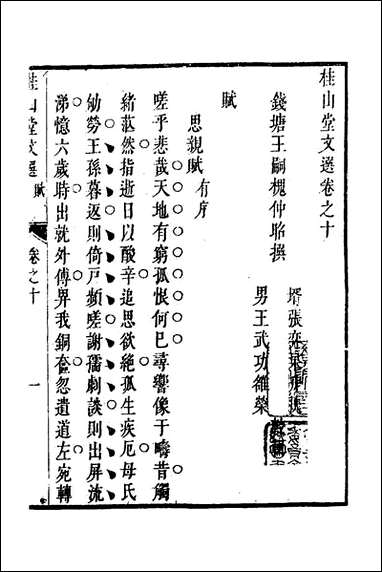 桂山堂文選卷之十
錢塘王嗣槐仲昭撰
壻張
男王武功維榮
賦
思親賦有序
嗟乎悲哉天地有窮孤恨何已尋響像于疇昔觸
緒茫然指逝日以酸辛追思欲絕孤生疾厄母氏
劬勞王孫暮返則倚戶頻嗟謝孺劇談則出屏流
涕憶六歲時出就外傅畀我銅奩忽遺道左宛轉
桂山堂文選
賦
卷之十
一